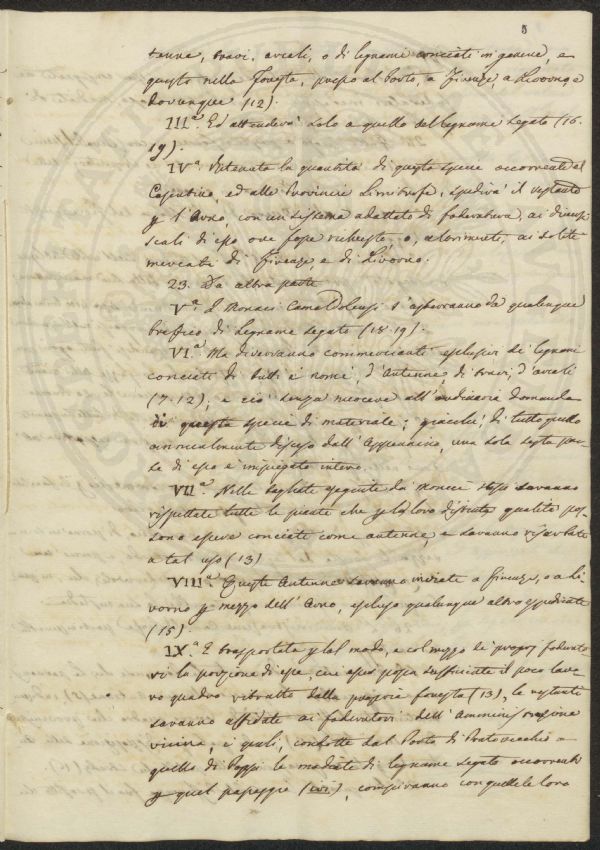 8
tenne, travi, arcali, o di legname conciati in genere, e
questo nella Foresta, presso al Porto, a Firenze, a Livorno, e
dovunque (12).
III.ª Ed attenderà solo a quello del legname segato (16.
19).
IV.ª Ritenuta la quantità di questa specie occorrente al
Casentino, ed alle Provincie Limitrofe, spedirà il restante
p l'Arno, con un sistema adattato di foderatura, ai diversi
scali di esso ove fosse richiesto, o, altrimenti, ai soliti
mercati di Firenze, e di Livorno.
23. Da altra parte
V.ª I Monaci Camaldolensi s'asterranno da qualunque
traffico di legname segato (18.19).
VI.ª Ma diverranno commercianti esclusivi dei legnami
conciati di tutti i nomi, d'antenne, di travi, d'arcali
(7.12), e ciò senza nuocere all'ordinaria domanda
di questa specie di materiale; giacchè, di tutto quello
annualmente disceso dall'Appennino, una sola sesta par-
te di esso è impiegato intero.
VII.ª Nelle tagliate eseguite dai Monaci stessi saranno
rispettate tutte le piante che p la loro distinta qualità pos-
sono essere conciate come antenne, e saranno riserbate
a tal uso (13)
VIII.ª Queste Antenne saranno inviate a Firenze, o a Li-
vorno p mezzo dell'Arno, escluso qualunque altro espediente
(15).
IX.ª E trasportata p tal modo, e col mezzo dei propri foderato-
ri la porzione di esse, cui può essere sufficiente il poco lavo-
ro quadro ritratto dalla propria foresta (13), le restanti
saranno affidate ai foderatori dell'Amministrazione
vicina, i quali, condotte dal Porto di Pratovecchio a
quello di Poppi le madiate di legname segato occorrenti
p quel passaggio (ivi), compiranno con quelle le loro